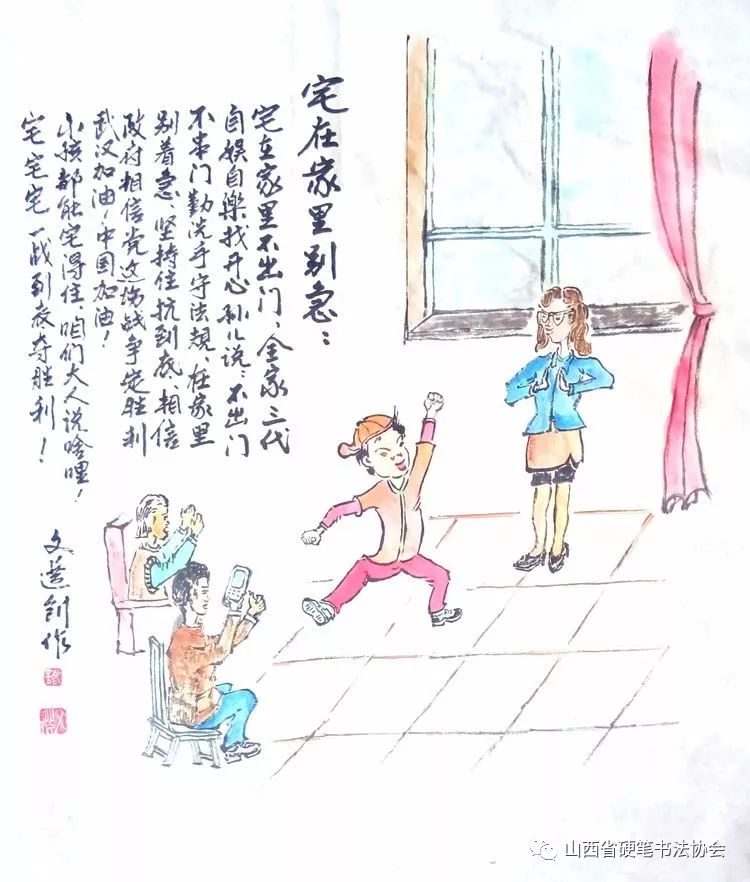 宅在家里别急：
宅在家里不出门、全家三代
自娱自乐找开心孙儿说：不出门
不串门勤洗手守法规、在家里
别着急、坚持住抗到底、相信
政府相信党这场战争定胜利
武汉加油！中国加油！
小孩都能宅得住咱们大人说啥哩！
宅宅宅一战到底夺胜利！
文选创作
山西省硬笔书法协会